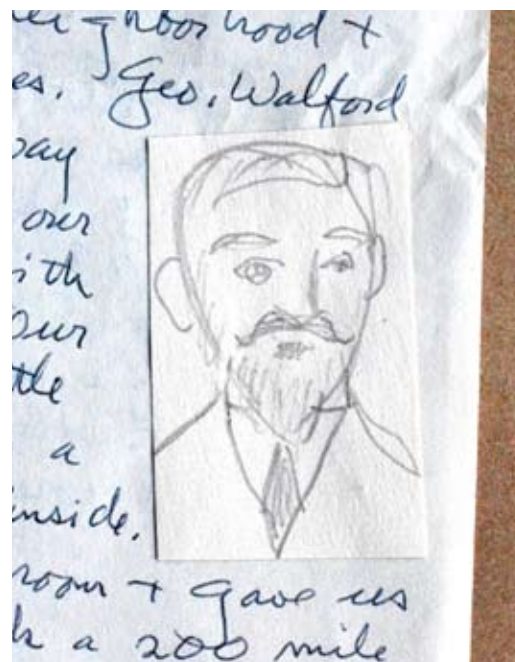 neighborhood +
es. Geo. Walford
way
over
with
our
ttle
a
inside.
room + gave us
a 200 mile